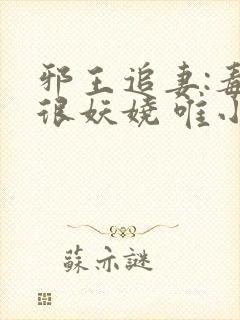 邪王追妻:毒
很妖娆 唯小
蘇亦謎